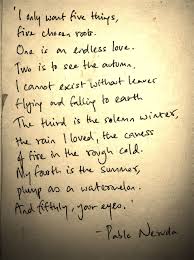 'I only want five things,
five chosen roots.
One is an endless love.
Two is to see the autumn.
I cannot exist without leaves
flying and falling to earth
The third is the solemn winter,
the rain I loved, the caress
of fire in the rough cold.
My fourth is the summer,
plump as a watermelon.
And fifthly, your eyes.'
- Pablo Neruda